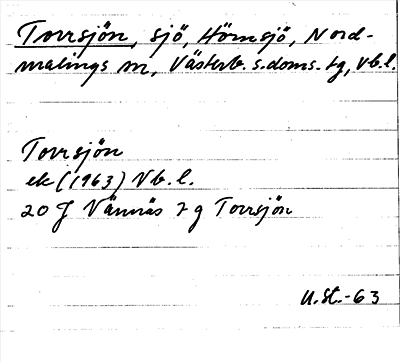 Torrsjön, sjö, Hörnsjö, Nord-
malings sn, Västerb. s.doms. tg, vb.l.
Torrsjön
ek (1963) Vb. l.
20 J Vännäs 7 g Torrsjön
U.St.-63